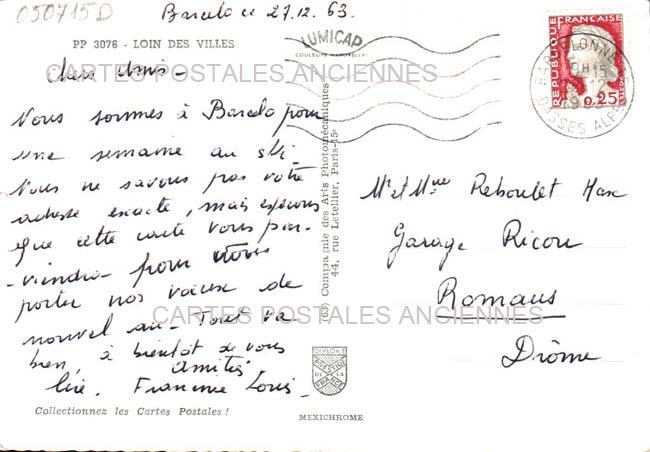 050715D
Barcelo ce 27.12.63.
PP 3076 - LOIN DES VILLES
LUMICAP
COULEURS NATURELLES
RÉPUBLIQUE FRANÇAISE
0,25
BARCELONNETTE
BASSES ALPES
Chers Amis -
CARTES POSTALES ANCIENNES
Nous sommes à Barcelo pour
une semaine au ski.
Nous ne savons pas votre
adresse exacte, mais espérons
que cette carte vous par-
viendra pour vous
porter nos voeux de
nouvel an - Tout va
bien, à bientôt de vous
lire. Amitiés
Francine Louis -
(63) Compagnie des Arts Photomécaniques
44, rue Letellier, Paris-15e
Mr et Mme Reboulet Max
Garage Ricou
Romans
Drôme
CARTES POSTALES ANCIENNES
DIPLOME
PRESTIGE
DE LA
FRANCE
Collectionnez les Cartes Postales !
MEXICHROME